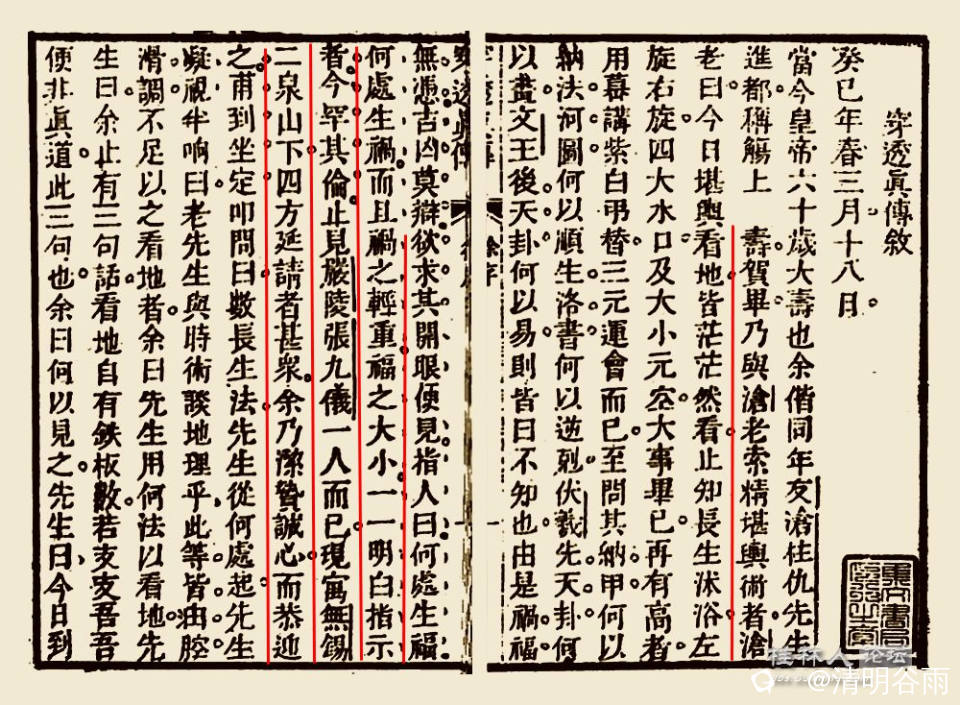 穿透真傳敘
癸巳年春三月十八日
當今皇帝六十歲大壽也余偕同年友滄柱仇先生
進都稱觴上 壽賀畢乃與滄老索精堪輿術者滄
老曰今日堪輿看地皆茫茫然看止知長生沐浴左
旋右旋四大水口及大小元空大事畢已再有高者
用幕講紫白弔替三元運會而已至問其納甲何以
納法河圖何以順生洛書何以逆剋伏羲先天卦何
以畫文王後天卦何以易則皆曰不知也由是禍福
無憑吉凶莫辯欲求其開眼便見指人曰何處生福
何處生禍而且禍之輕重福之大小一一明白指示
者今罕其倫止見嚴陵張九儀一人而已現寓無錫
二泉山下四方延請者甚衆余乃潔贄誠心而恭迎
之甫到坐定叩問曰數長生法先生從何處起先生
凝視半响曰老先生與時術談地理乎此等皆由腔
滑調不足以之看地者余曰先生用何法以看地先
生曰余止有三句話看地自有鉄板數若支支吾吾
便非真道此三句也余曰何以見之先生曰今日到
桂林人论坛
@清明谷雨